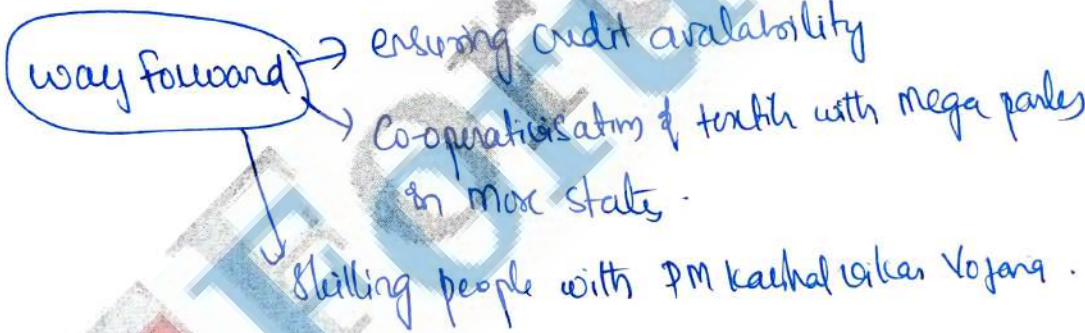 way forward
→ ensuring credit avalability
→ Co-operativisation of textile with Mega parks
in more states.
Skilling people with PM Kaushal vikas Yojana.